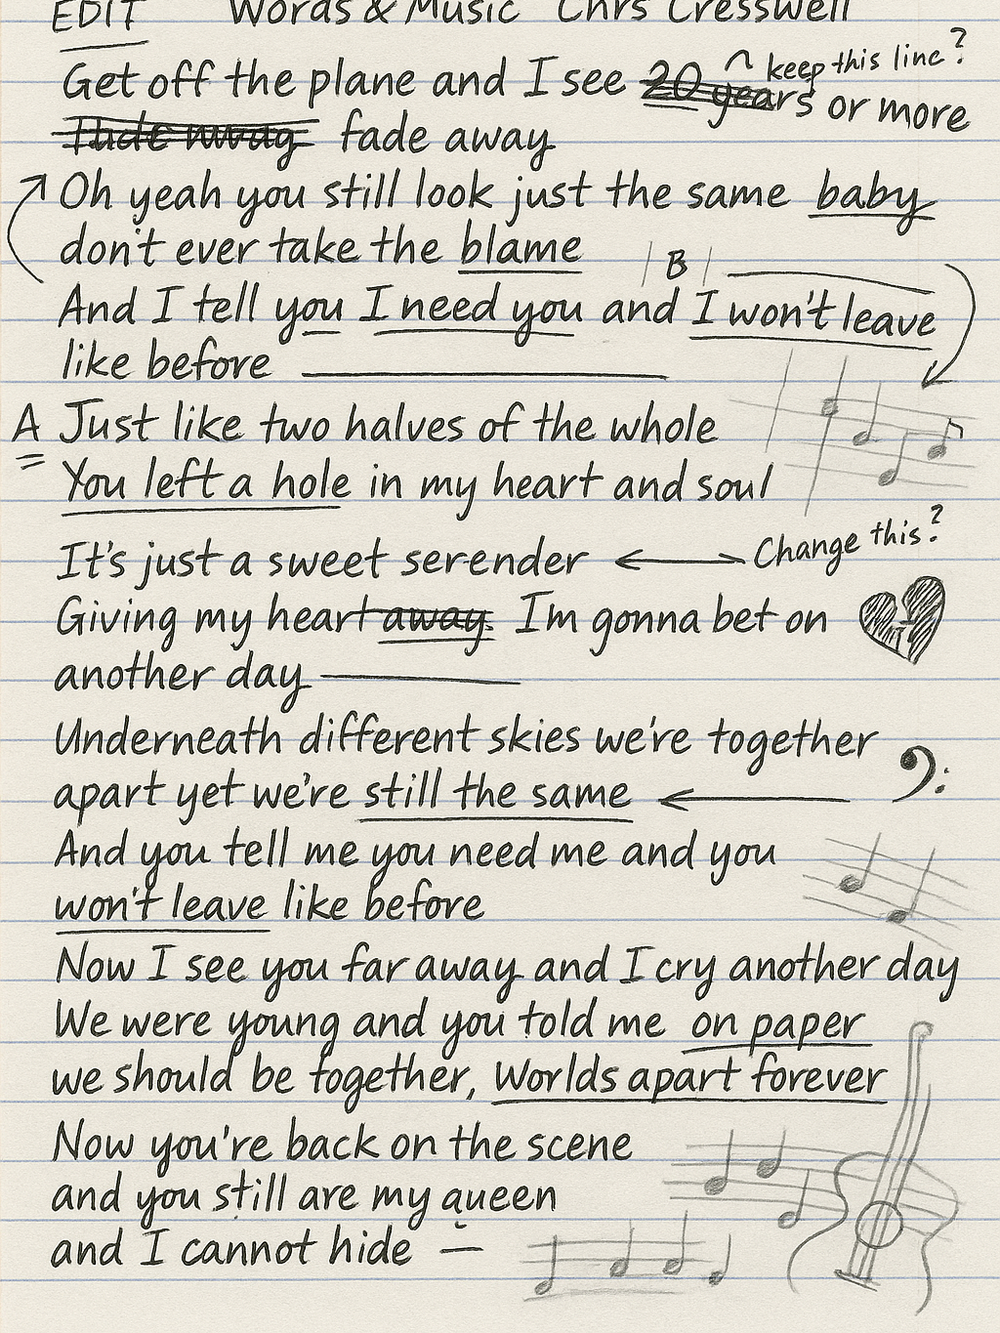 EDIT Words & Music Chrs Cresswell
keep this line?
Get off the plane and I see 20 years or more
fade away
Oh yeah you still look just the same baby
don't ever take the blame
B
And I tell you I need you and I won't leave
like before
A Just like two halves of the whole
You left a hole in my heart and soul
It's just a sweet serender Change this?
Giving my heart away. Im gonna bet on
another day
Underneath different skies we're together
apart yet we're still the same
And you tell me you need me and you
won't leave like before
Now I see you far away and I cry another day
We were young and you told me on paper
we should be together, Worlds apart forever
Now you're back on the scene
and you still are my queen
and I cannot hide —